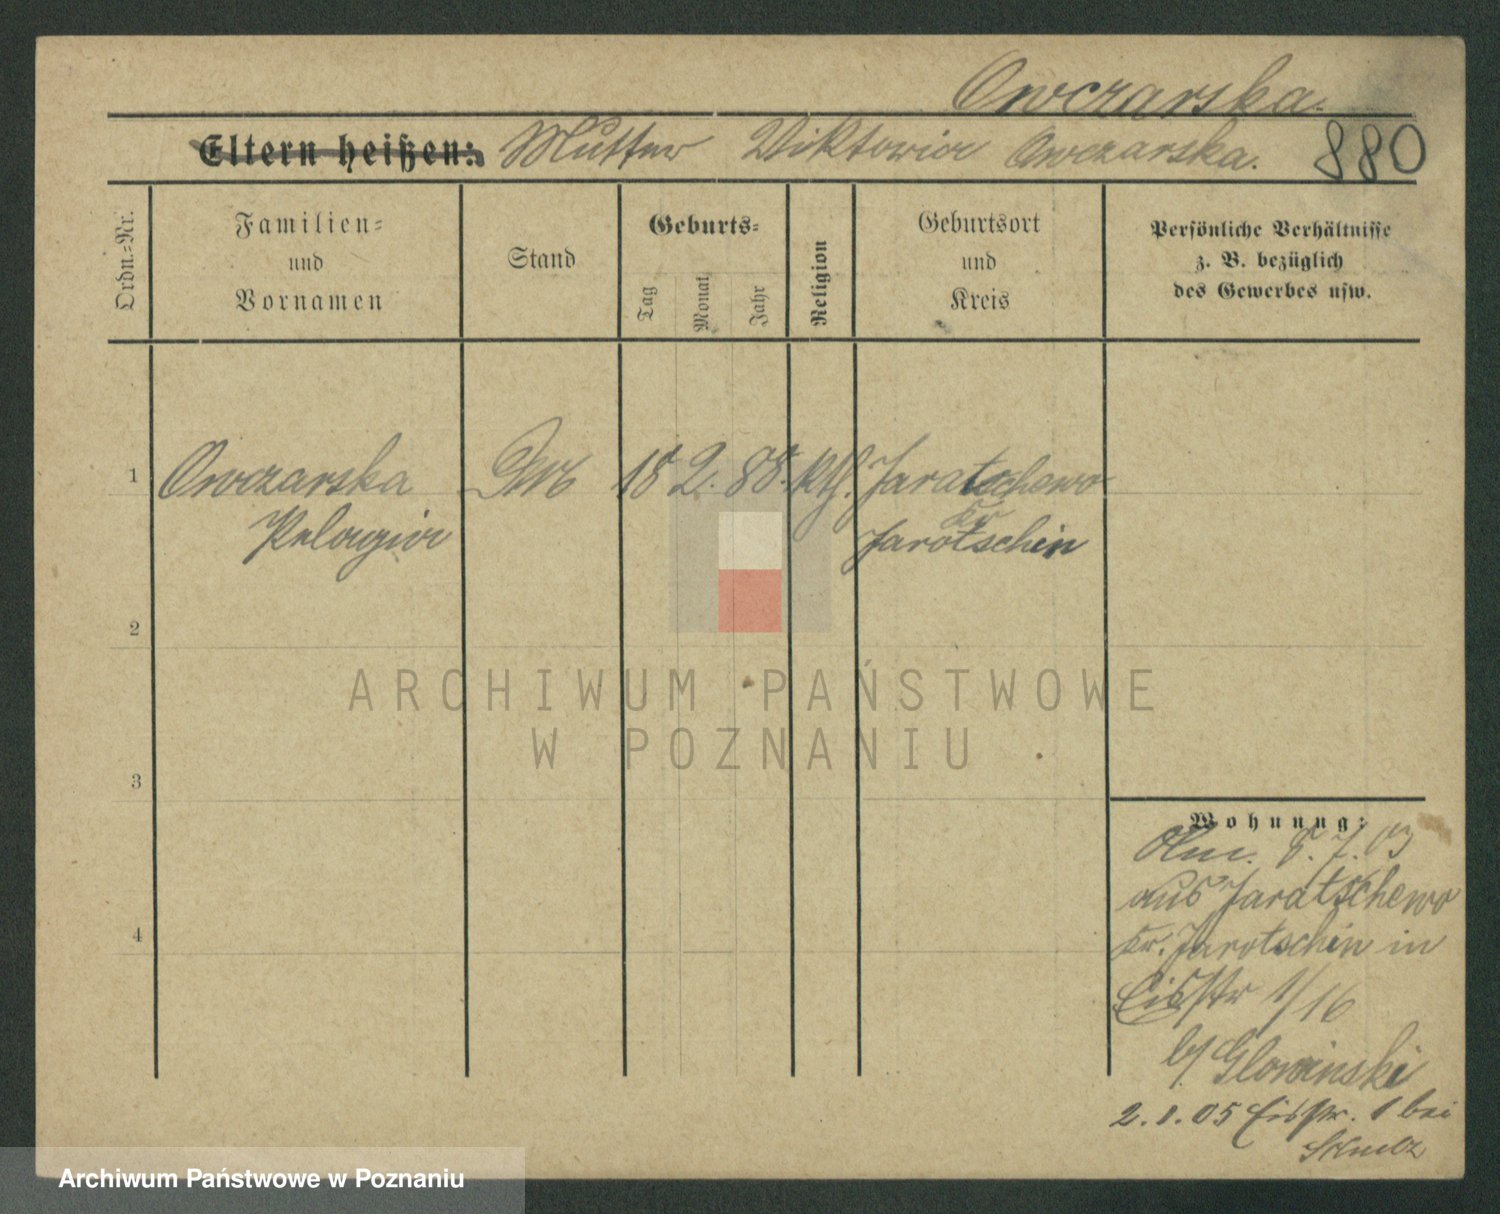 Owczarska.
Eltern heißen: Mutter Viktoria Owczarska. 880
Ordn.=Nr.
Familien=
und
Vornamen
Stand
Geburts=
Tag
Monat
Jahr
Religion
Geburtsort
und
Kreis
Persönliche Verhältnisse
z. B. bezüglich
des Gewerbes usw.
1 Owczarska 18 2. 88. kth. Jaratschewo
Pelagia Kr
Jarotschin
2
3
4
ARCHIWUM PAŃSTWOWE
W POZNANIU
Wohnung:
8. 7. 03
aus Jaratschewo
Kr. Jarotschin in
Eisstr 1/16
b/ Glowinski
2. 1. 05 Eisstr. 1 bei
Archiwum Państwowe w Poznaniu